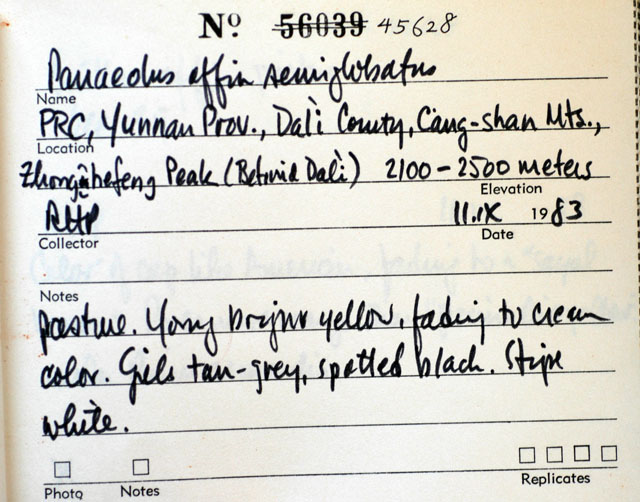 Nº 56039 45628
Panaeolus affin semiglobatus
Name
PRC, Yunnan Prov., Dali County, Cang-shan Mts.,
Location
Peak (Behind Dali) 2100-2500 meters
Elevation
RHP 11.IX 1983
Collector Date
Notes
pasture. Young bright yellow, fading to cream
color. Gills tan-grey, spotted black. Stipe
white.
Photo Notes Replicates